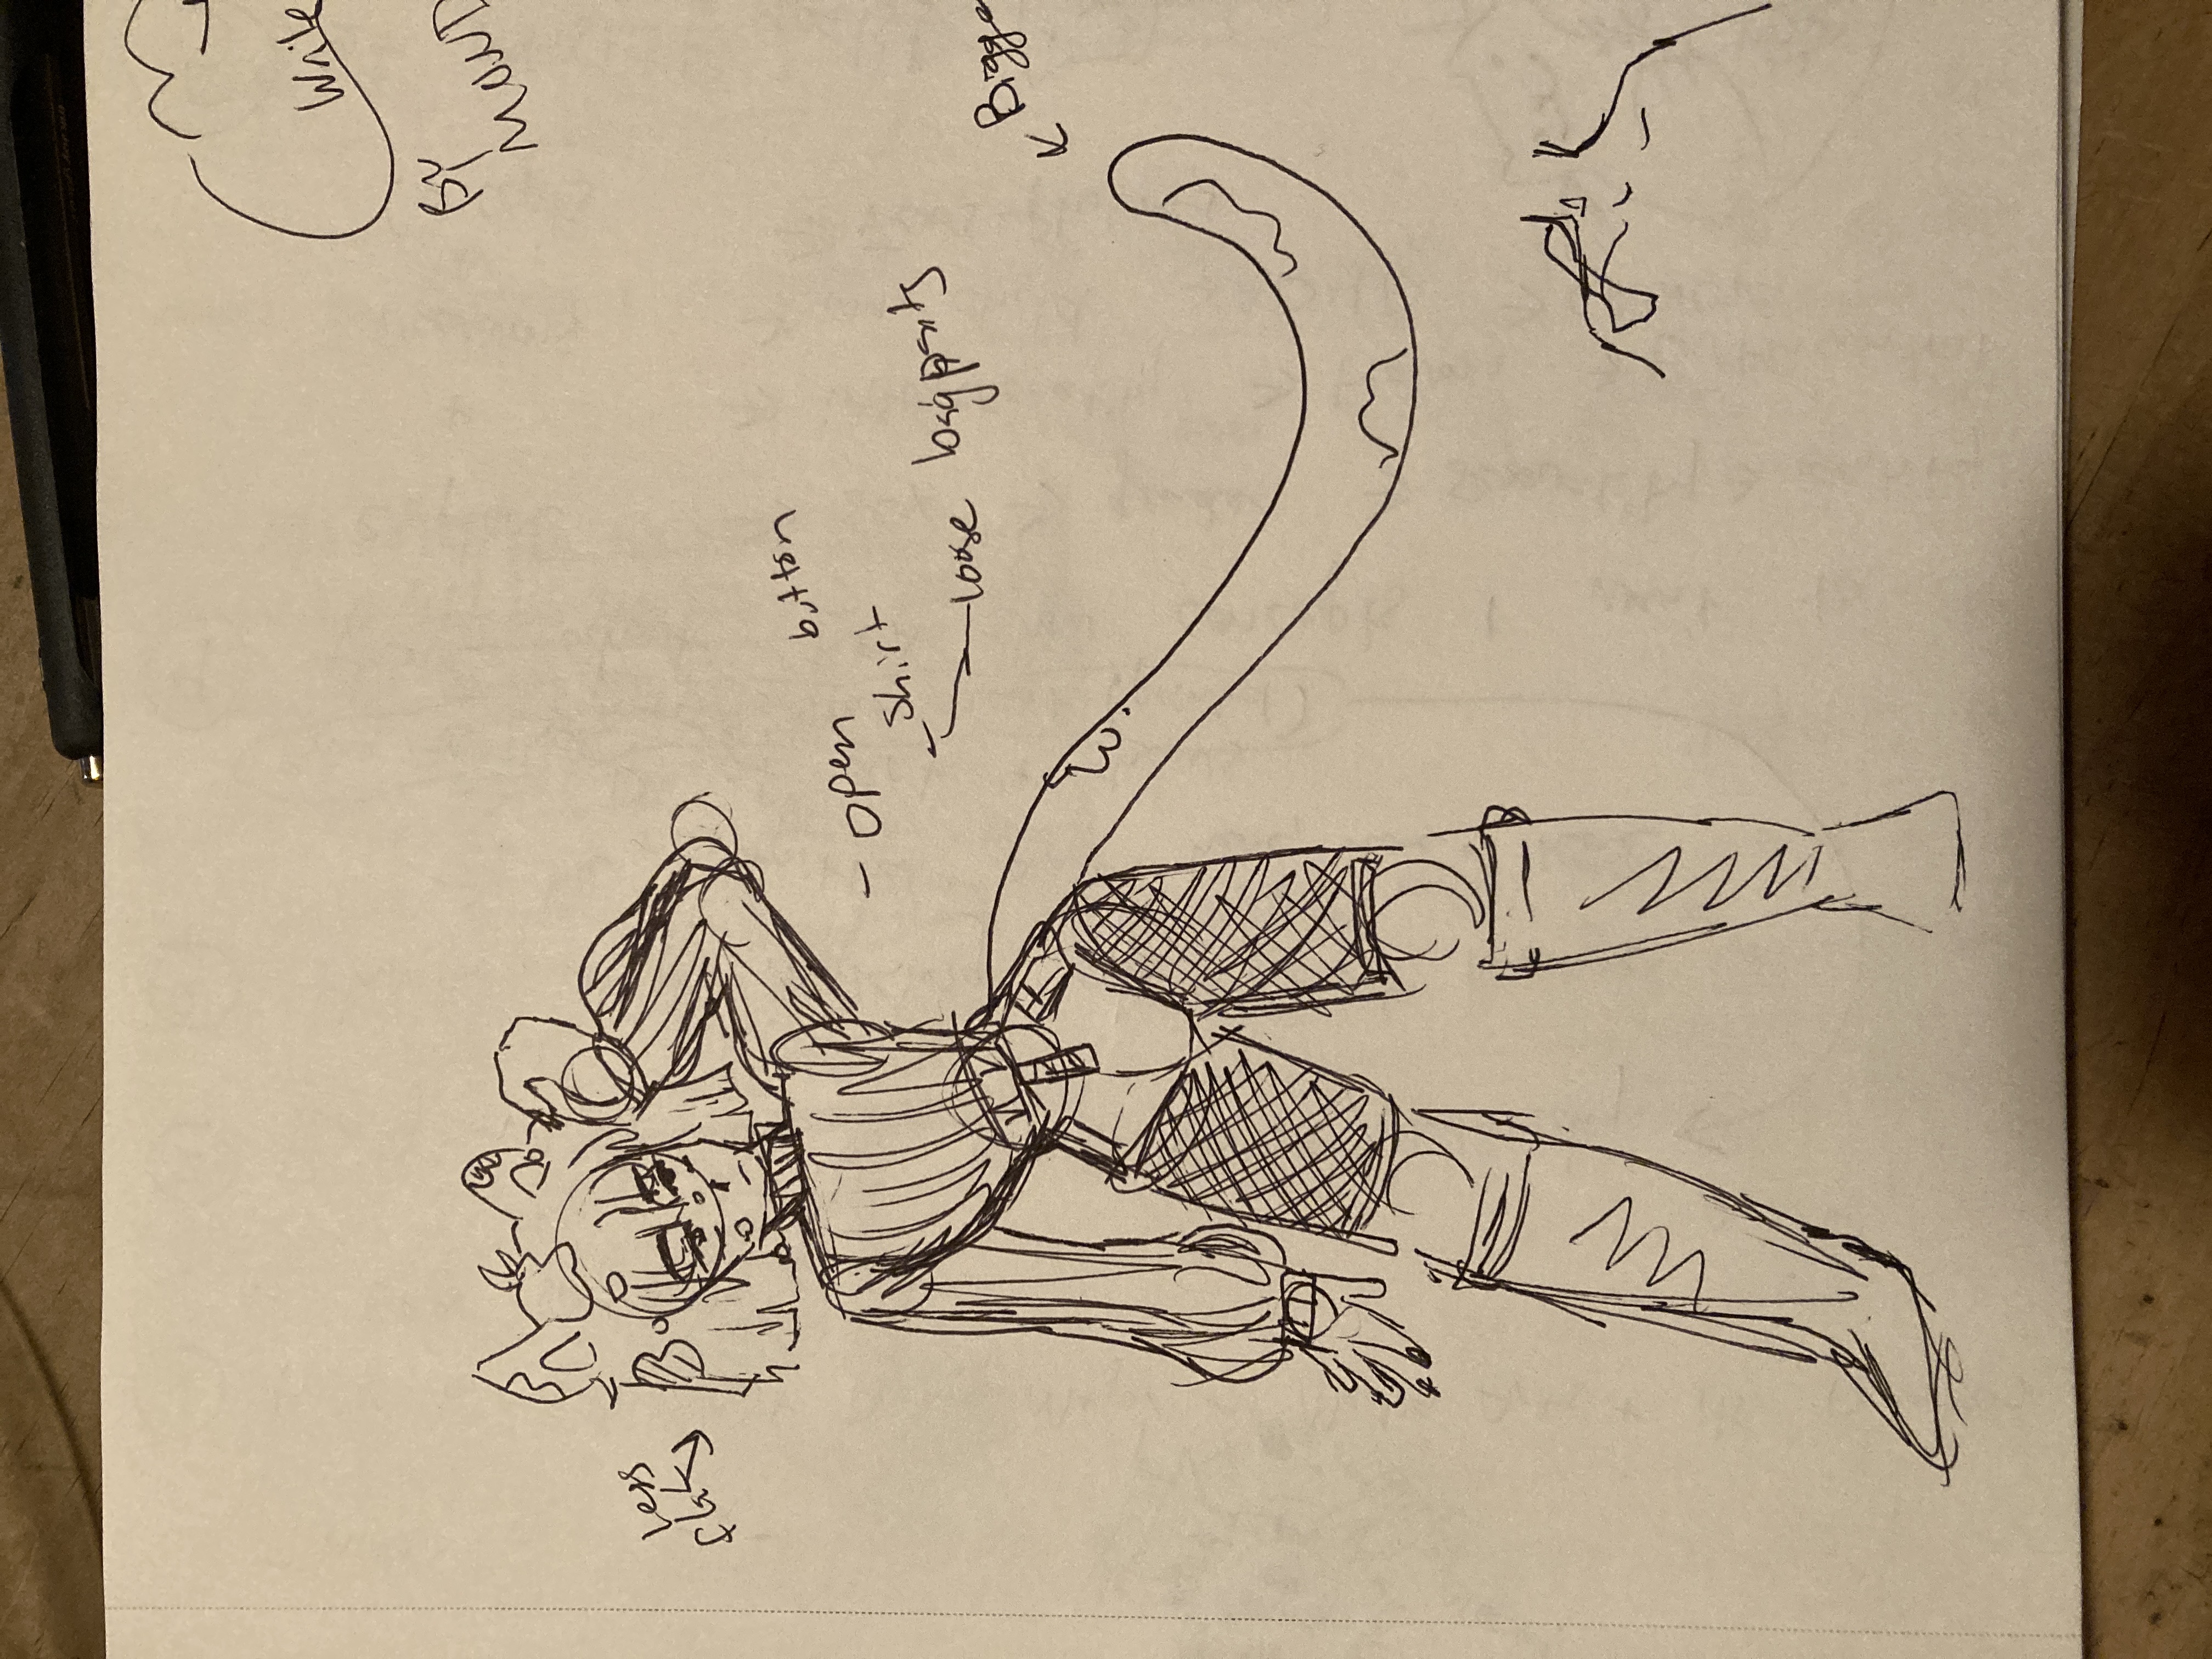 Write
By
MOND
Less
- open button
- shirt
loose bagpants
Bigge